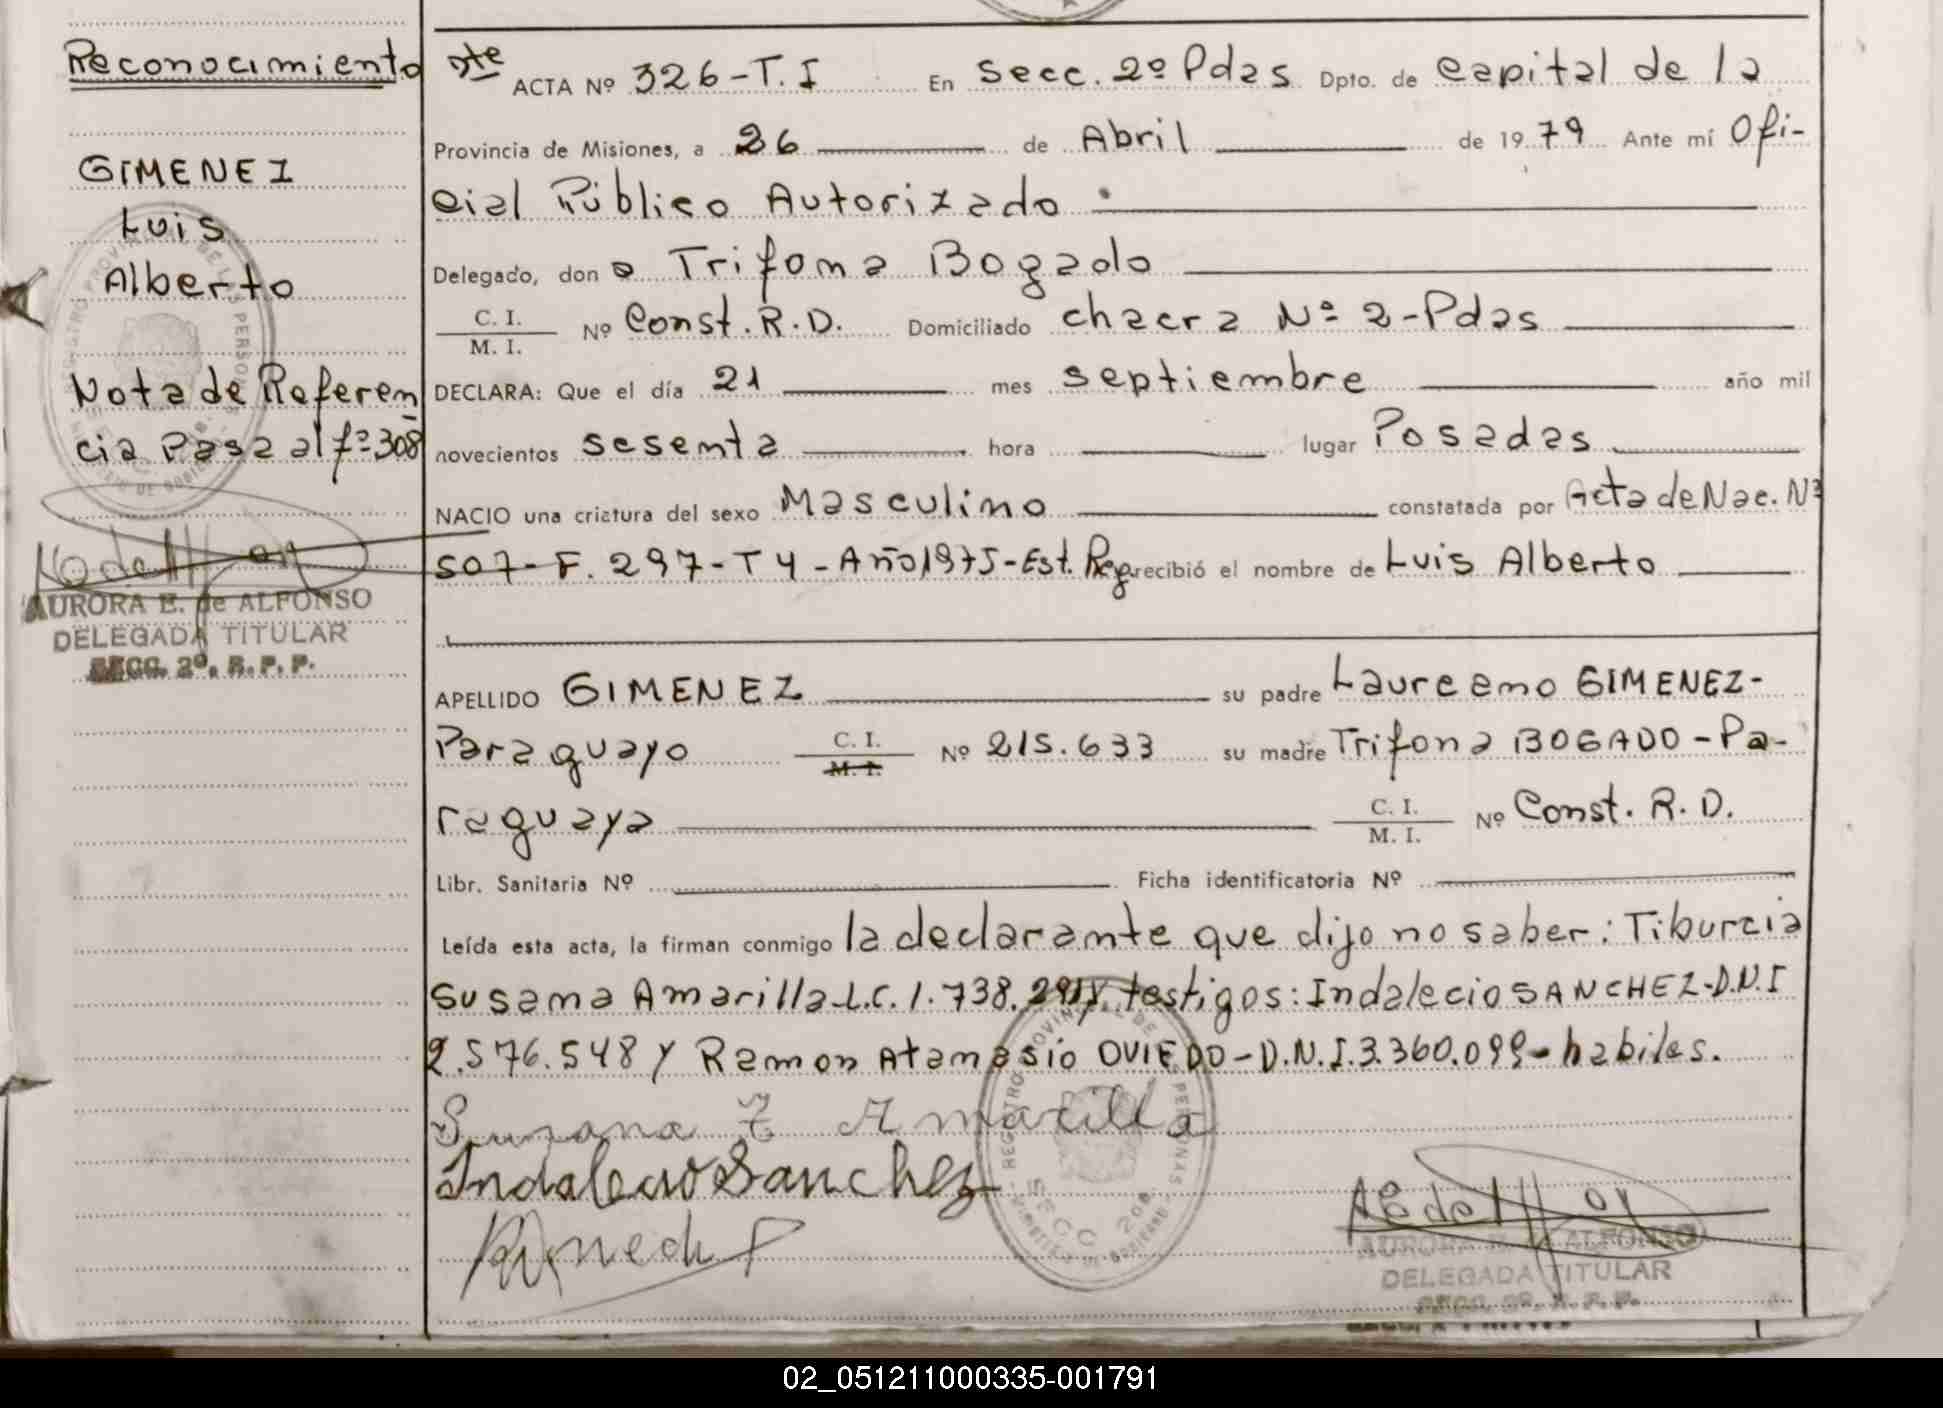 Reconocimiento
GIMENEZ
Luis
Alberto
Nota de Referen
cia Pasa al fº 308
AURORA E. de ALFONSO
DELEGADA TITULAR
SECC. 2º. R. P. P.
ACTA Nº 326-T.I En Secc. 2º Pdas Dpto. de Capital de la
Provincia de Misiones, a 26 de Abril de 1979 Ante mí Ofi-
cial Público Autorizado.
Delegado, don a Trifona Bogado
C. I.
M. I. Nº Const. R.D. Domiciliado chacra Nº 2-Pdas
DECLARA: Que el día 21 mes septiembre año mil
novecientos sesenta hora lugar Posadas
NACIO una criatura del sexo Masculino constatada por Acta de Nac. Nº
507-F. 297-T4-Año1975-Est. Reg recibió el nombre de Luis Alberto
APELLIDO GIMENEZ su padre Laureano GIMENEZ-
Paraguayo C. I. M. I. Nº 215.633 su madre Trifona BOGADO-Pa-
raguaya C. I. M. I. Nº Const. R. D.
Libr. Sanitaria Nº Ficha identificatoria Nº
Leída esta acta, la firman conmigo la declarante que dijo no saber: Tiburcia
Susana Amarilla-L.C. 1.738. testigos: Indalecio SANCHEZ-D.N.I
2.576.548 y Ramon Atanasio OVIEDO-D.N.I. 3.360.099-habiles.
Susana T Amarilla
Indalecio Sanchez
REGISTRO PROVINCIAL DE LAS PERSONAS
SECC 2da.
MINISTERIO DE GOBIERNO
AURORA E. de ALFONSO
DELEGADA TITULAR
SECC. 2º. R. P. P.
02_051211000335-001791